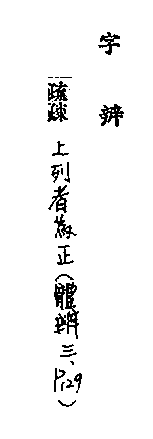 字辨
疏疎上列者為正(體辨三、P.129)